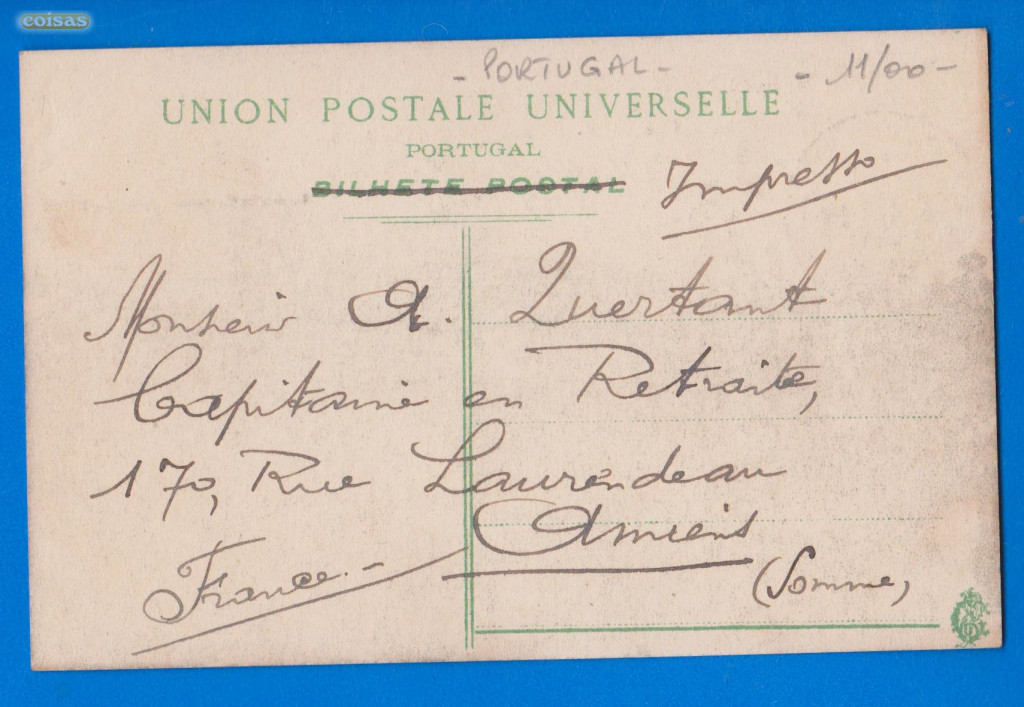 coisas
- PORTUGAL - - 11/00 -
UNION POSTALE UNIVERSELLE
PORTUGAL
BILHETE POSTAL
Impresso
Monsieur A. Quertant
Capitaine en Retraite,
170, Rue Laurendeau
Amiens
(Somme)
France.-